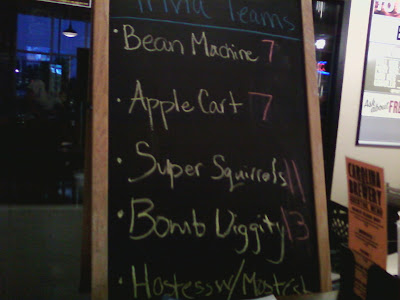 Trivia Teams
• Bean Machine 7
• Apple Cart 7
• Super Squirrels 11
• Bomb Diggity 13
• Hostess w/
Ask about FREE
CAROLINA
BREWERY